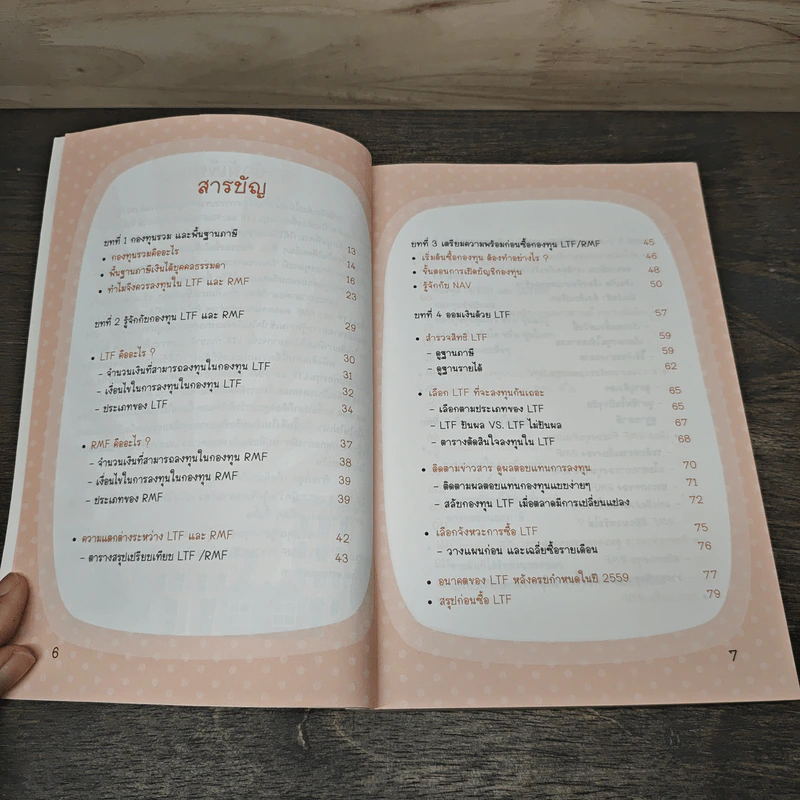 สารบัญ
บทที่ 1 กองทุนรวม และพื้นฐานภาษี 13
• กองทุนรวมคืออะไร 14
• พื้นฐานภาษีเงินได้บุคคลธรรมดา 16
• ทำไมจึงควรลงทุนใน LTF และ RMF 23
บทที่ 2 รู้จักกับกองทุน LTF และ RMF 29
• LTF คืออะไร ? 30
- จำนวนเงินที่สามารถลงทุนในกองทุน LTF 31
- เงื่อนไขในการลงทุนในกองทุน LTF 32
- ประเภทของ LTF 34
• RMF คืออะไร ? 37
- จำนวนเงินที่สามารถลงทุนในกองทุน RMF 38
- เงื่อนไขในการลงทุนในกองทุน RMF 39
- ประเภทของ RMF 39
• ความแตกต่างระหว่าง LTF และ RMF 42
- ตารางสรุปเปรียบเทียบ LTF /RMF 43
6
บทที่ 3 เตรียมความพร้อมก่อนซื้อกองทุน LTF/RMF 45
• เริ่มต้นซื้อกองทุน ต้องทำอย่างไร ? 46
• ขั้นตอนการเปิดบัญชีกองทุน 48
• รู้จักกับ NAV 50
บทที่ 4 ออมเงินด้วย LTF 57
• สำรวจสิทธิ LTF 59
- ดูฐานภาษี 59
- ดูฐานรายได้ 62
• เลือก LTF ที่จะลงทุนกันเถอะ 65
- เลือกตามประเภทของ LTF 65
- LTF ปันผล VS. LTF ไม่ปันผล 67
- ตารางตัดสินใจลงทุนใน LTF 68
• ติดตามข่าวสาร ดูผลตอบแทนการลงทุน 70
- ติดตามผลตอบแทนกองทุนแบบง่ายๆ 71
- สลับกองทุน LTF เมื่อตลาดมีการเปลี่ยนแปลง 72
• เลือกจังหวะการซื้อ LTF 75
- วางแผนก่อน และเฉลี่ยซื้อรายเดือน 76
• อนาคตของ LTF หลังครบกำหนดในปี 2559 77
• สรุปก่อนซื้อ LTF 79
7